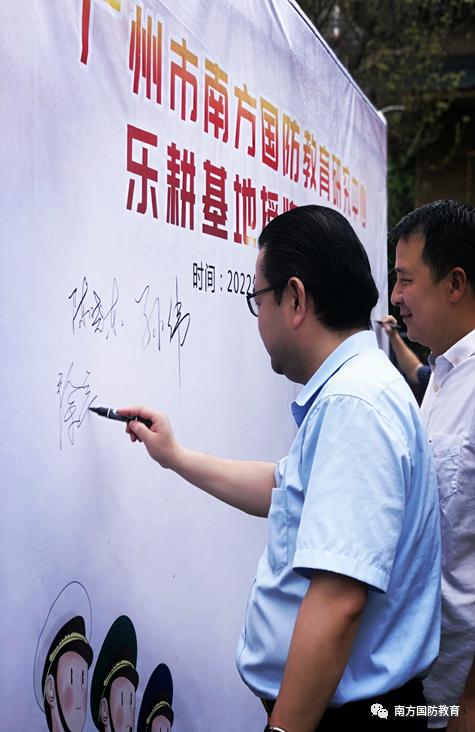 广州市南方国防教育研究中心
乐耕基地授牌
时间：2022
南方国防教育